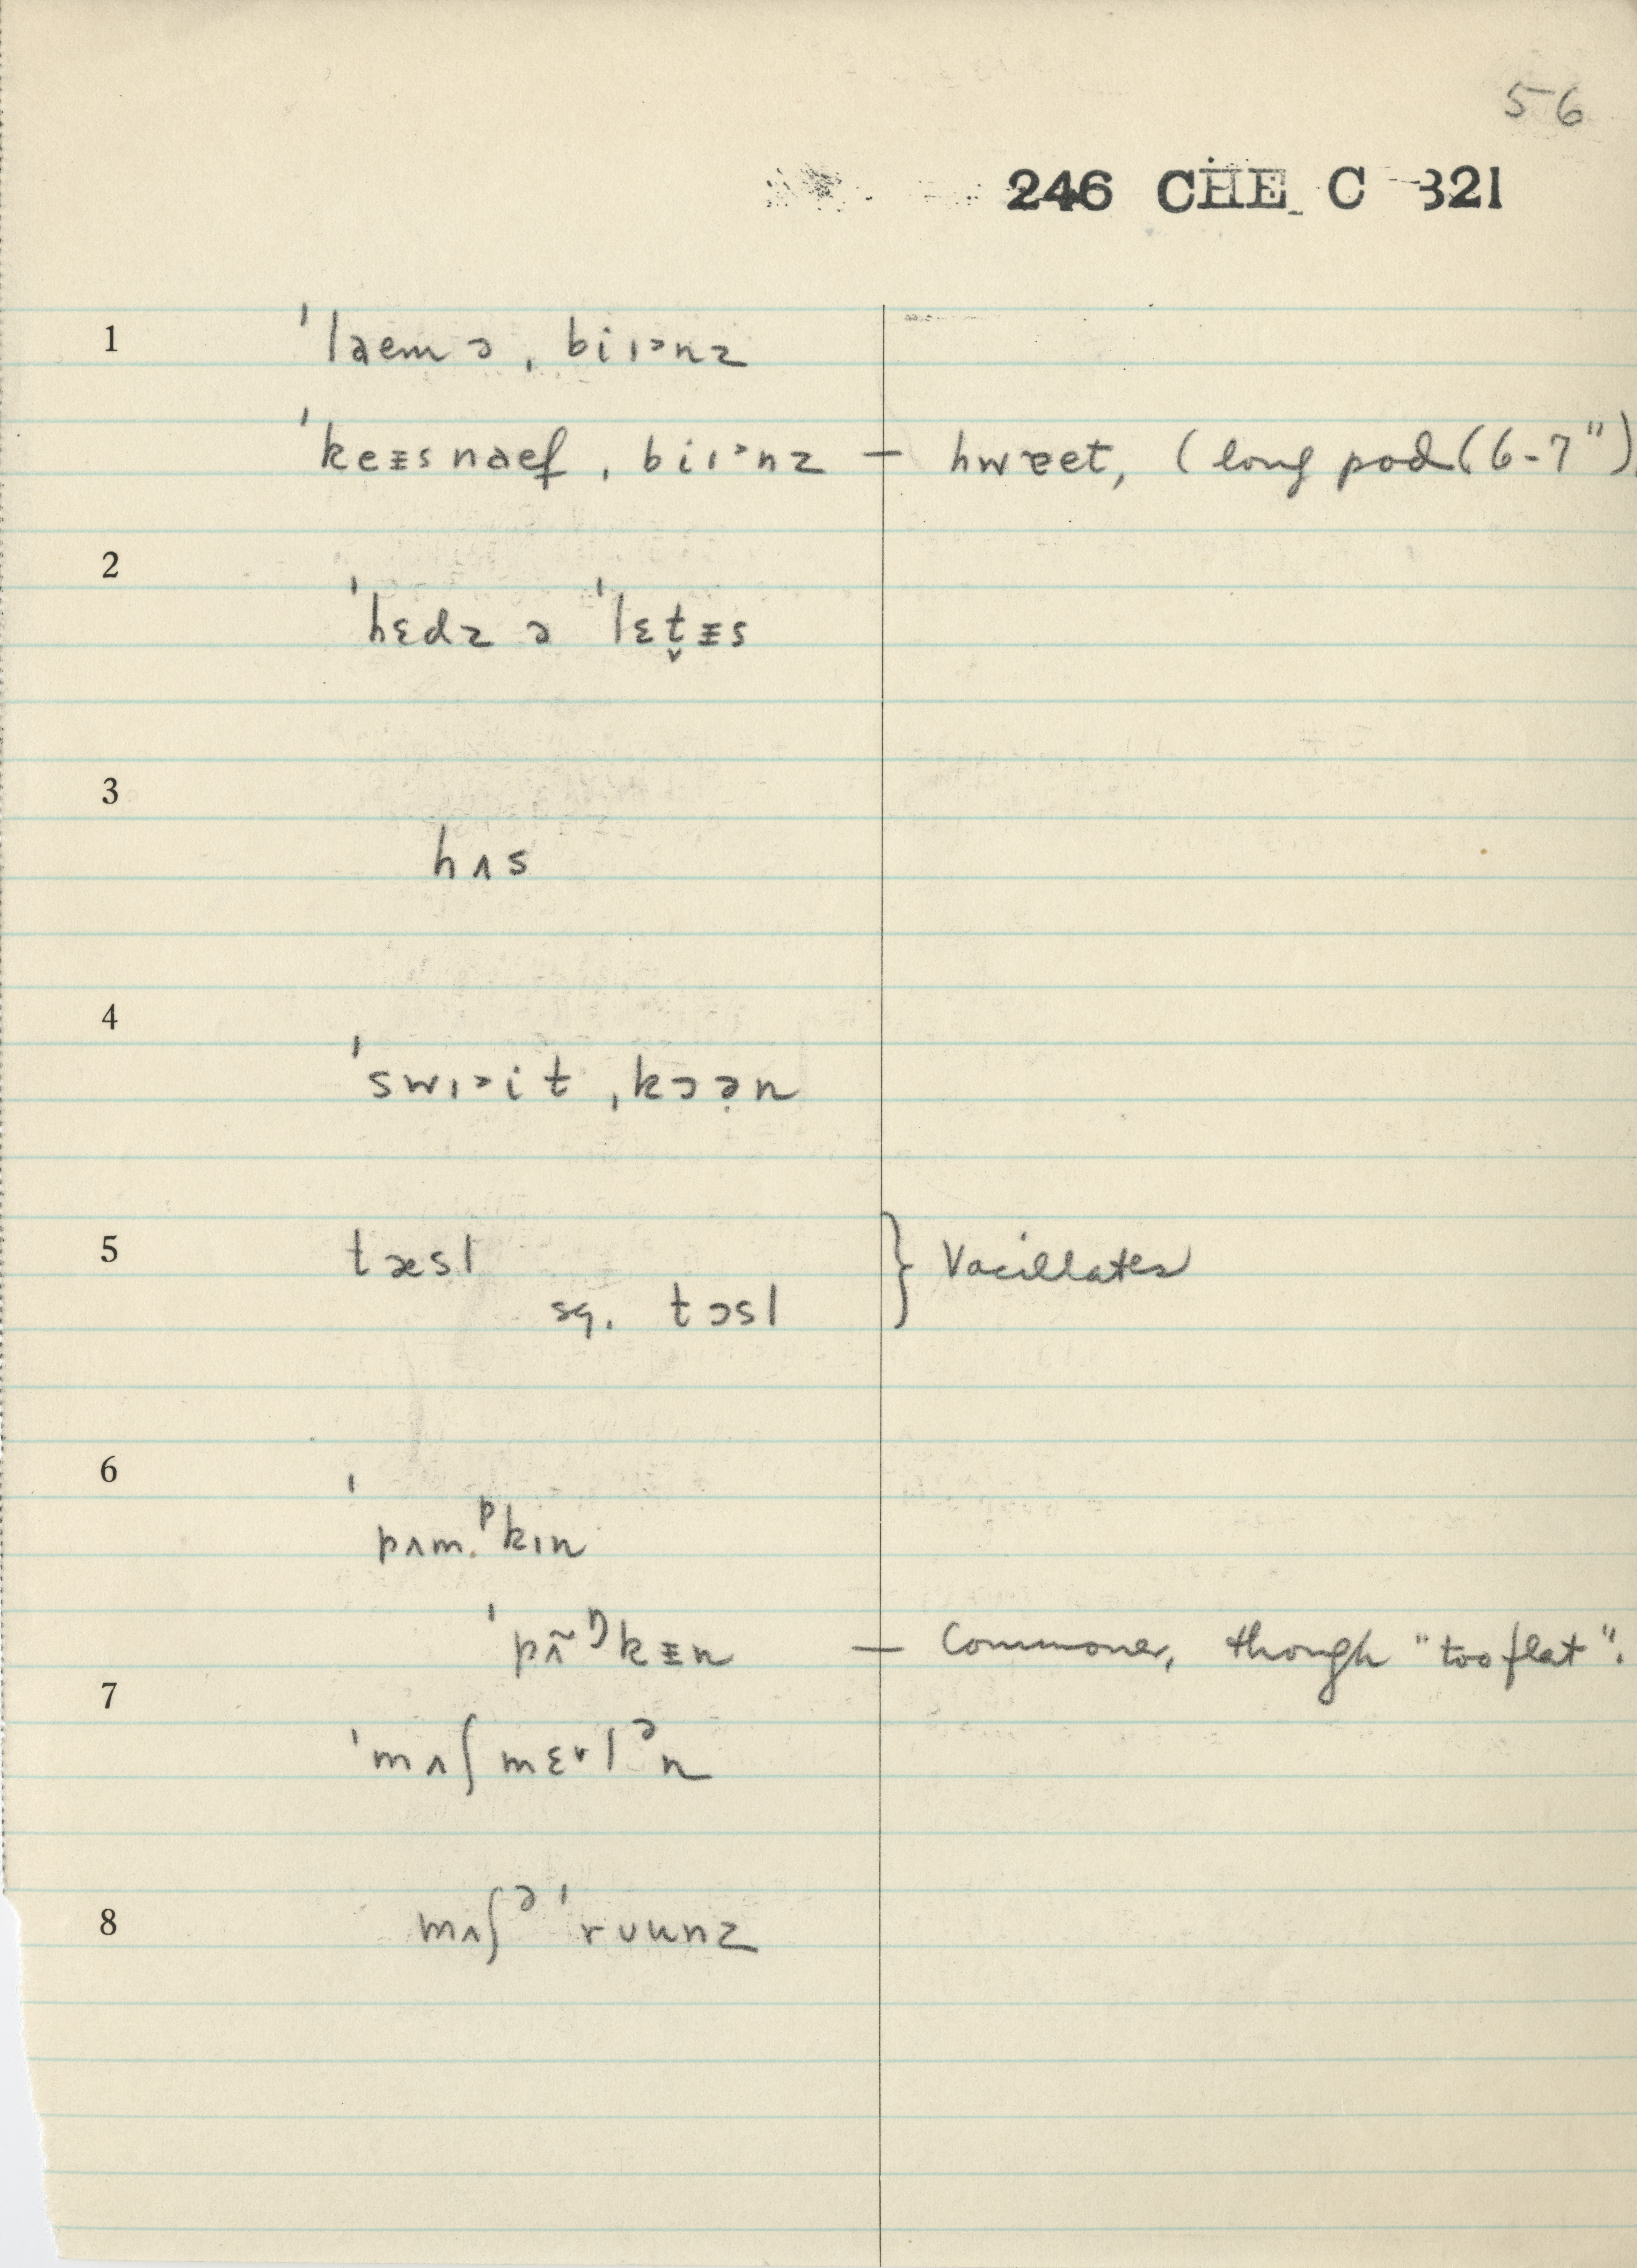 56
246 CHE C 321
1 ˈlaemə ˌbiɪ˃nz
ˈkeᵻsnaef ˌbiɪ˃nz — hwɐet, (long pod (6-7")
2 ˈhɛdz ə ˈlɛt̬ᵻs
3 hʌs
4 ˈswɪ˃it ˌkɔə̣n
5 tæsl } Vacillates
sq. tɔsl
6 ˈpʌm.ᵖkɪn
ˈpʌ̃ᵑkᵻn — Commoner, though "too flat".
7 ˈmʌʃmɛ˅lᵊn
8 mʌʃᵊˈrʊunz